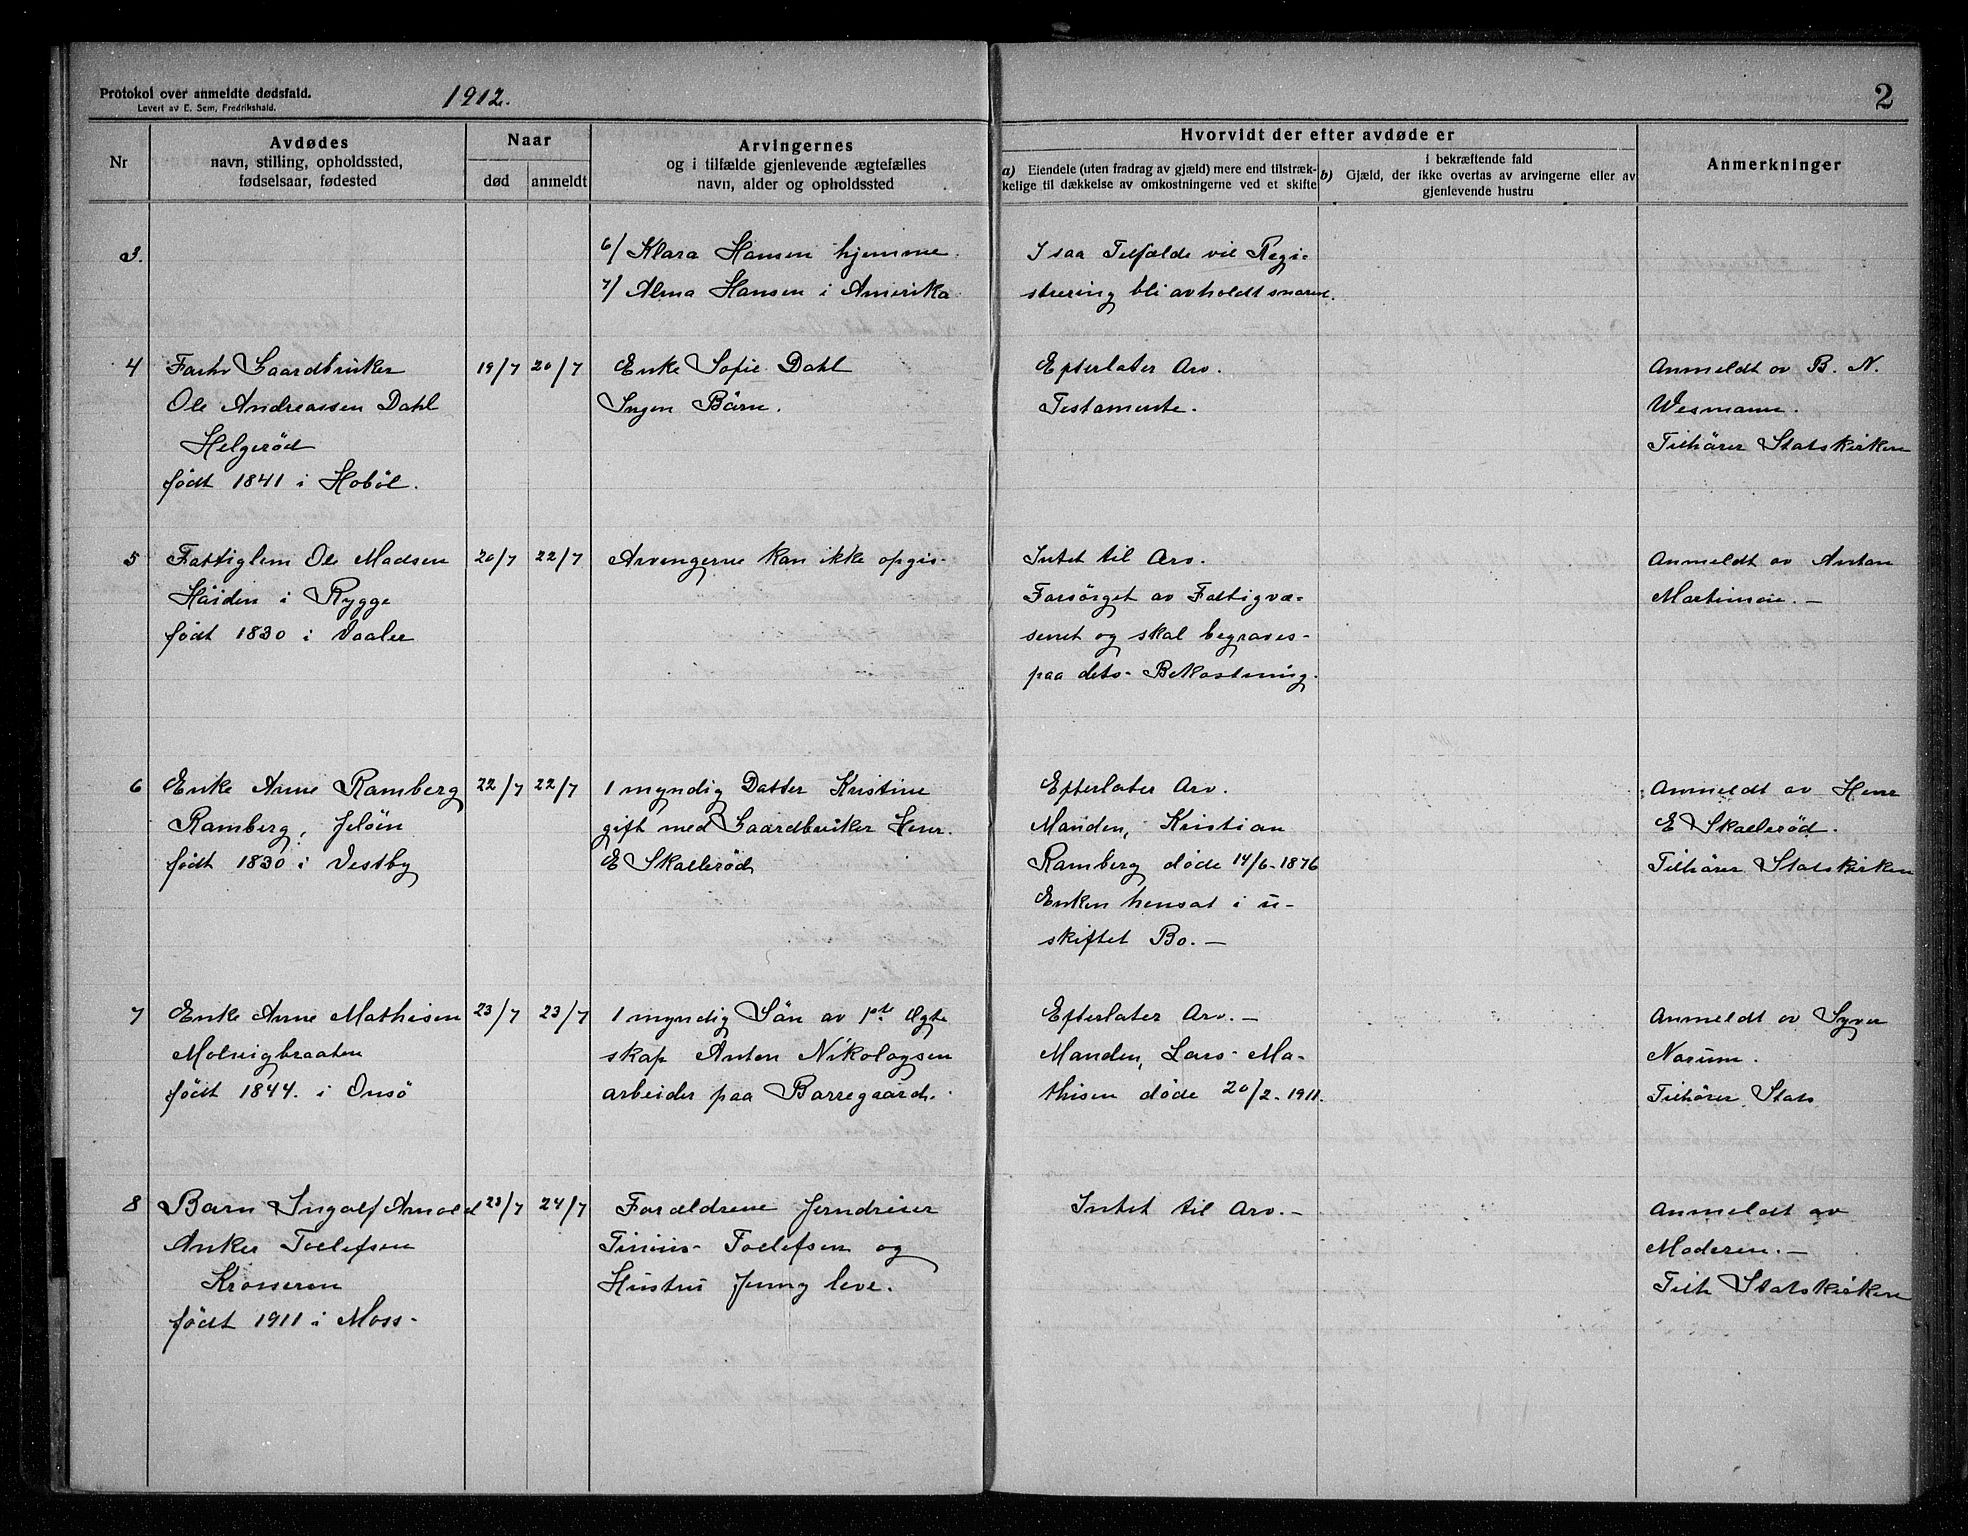 Protokol over anmeldte dødsfald.
Levert av E. Sem, Fredrikshald.
1912.
2
Nr
Avdødes
navn, stilling, opholdssted,
fødselsaar, fødested
Naar
død
anmeldt
Arvingernes
og i tilfælde gjenlevende ægtefælles
navn, alder og opholdssted
Hvorvidt der efter avdøde er
a) Eiendele (uten fradrag av gjæld) mere end tilstræk-
kelige til dækkelse av omkostningerne ved et skifte
i bekræftende fald
b) Gjæld, der ikke overtas av arvingerne eller av
gjenlevende hustru
Anmerkninger
3.
6/ Klara Hansen hjemme.
7/ Alma Hansen i Amerika
I saa Tilfælde vil Regi-
strering bli avholdt snarest.
4
Forhv Gaardbruker
Ole Andreassen Dahl
Helgerød
født 1841 i Hobøl.
19/7
20/7
Enke Sofie Dahl
Ingen Børn.
Efterlater Arv.
Testamente.
Anmeldt av B. N.
Wesmann.
Tilhører Statskirken
5
Fattiglem Ole Madsen
Høiden i Rygge
født 1830 i Vaaler
20/7
22/7
Arvingerne kan ikke opgis-
Intet til Arv.
Forsørget av Fattigvæ-
senet og skal begraves-
paa dets- Bekostning.
Anmeldt av Anton
6
Enke Anne Ramberg
Ramberg, Jeløen
født 1830 i Vestby
22/7
22/7
1 myndig Datter Kristine
gift med Gaardbruker Henr.
E Skallerød
Efterlater Arv.
Manden, Kristian
Ramberg døde 14/6-1876
Enken hensat i u-
skiftet Bo. —
Anmeldt av Henr
E Skallerød.
Tilhører Statskirken
7
Enke Anne Mathisen
Molvigbraaten
født 1844. i Onsø
23/7
23/7
1 myndig Søn av 1ste Ægte
skap Anton Nikolaysen
arbeider paa Borregaard.
Efterlater Arv. —
Manden, Lars Ma-
thisen døde 20/2-1911.
Anmeldt av Syver
Norum.
Tilhører Stats
8
Barn Ingolf Arnold
Anker Tollefsen
Krosseren
født 1911 i Moss-
23/7
24/7
Forældrene Jerndreier
Tollefsen og
Hustru Jenny leve.
Intet til Arv. —
Anmeldt av
Moderen. —
Tilh Statskirken